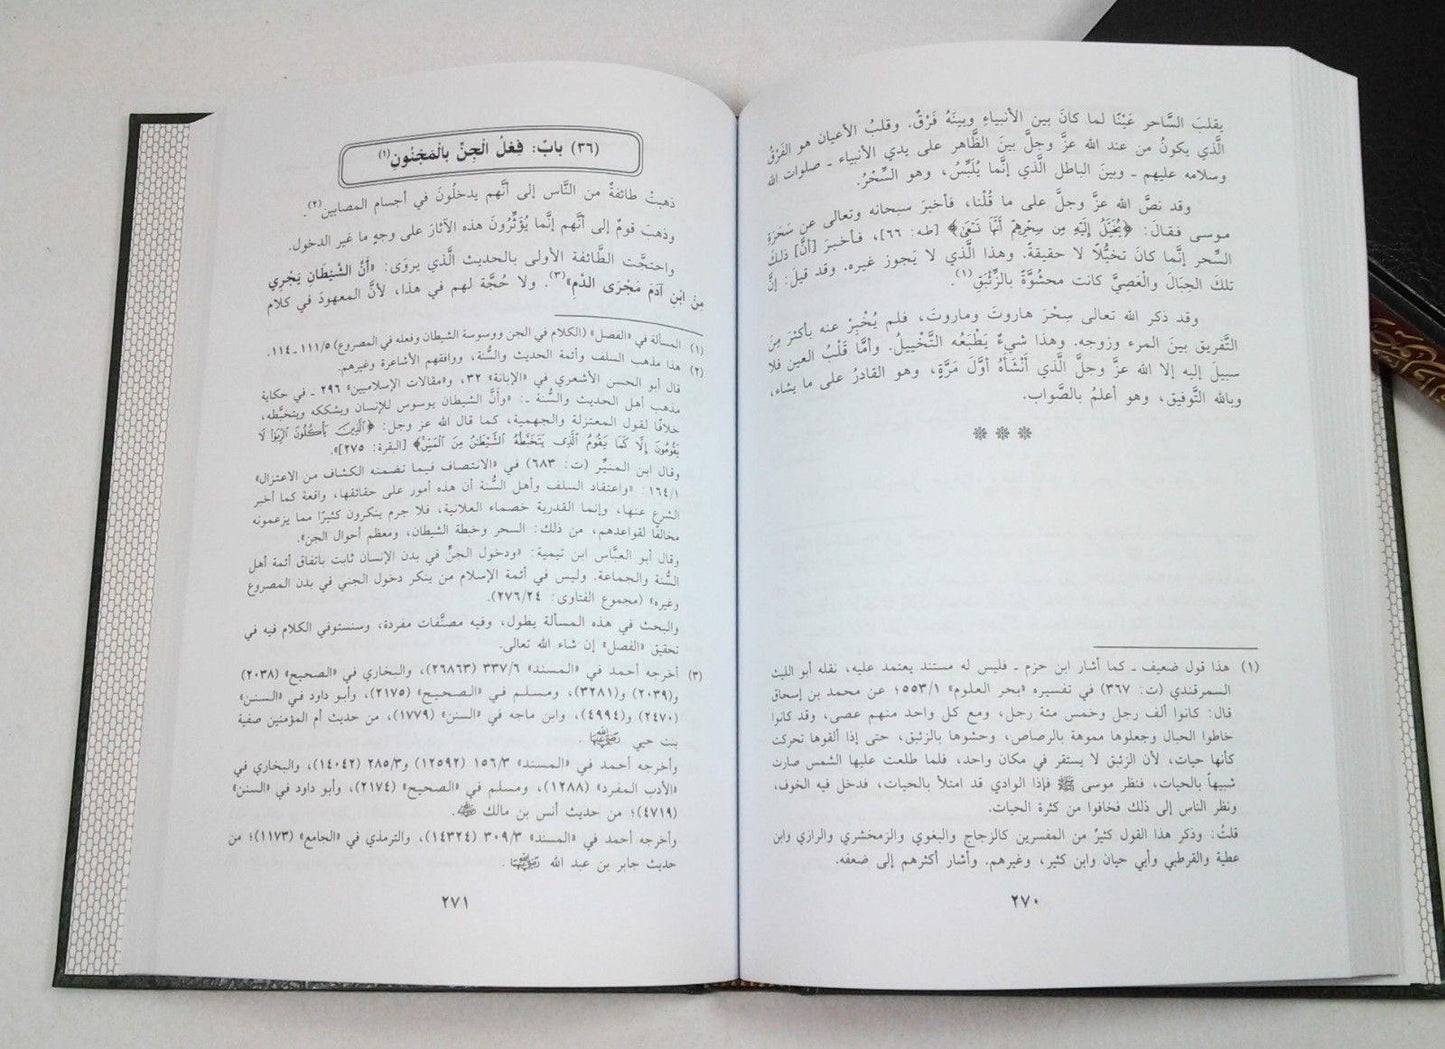 يقلبَ السَّاحر عَيْنًا لما كانَ بين الأنبياءِ وبينَهُ فَرْقٌ. وقلبُ الأعيان هو الفَرْقُ
الَّذي يكونُ من عند الله عزَّ وجلَّ بينَ الظَّاهر على يدي الأنبياء ـ صلوات الله
وسلامه عليهم ـ وبينَ الباطل الَّذي إنَّما يُلَبِّسُ، وهو السِّحْرُ.
وقد نصَّ الله عزَّ وجلَّ على ما قُلْنا، فأخبرَ سبحانه وتعالى عن سَحَرَةِ
موسى فقال: ﴿يُخَيَّلُ إِلَيْهِ مِن سِحْرِهِمْ أَنَّهَا تَسْعَىٰ﴾ [طه: ٦٦]، فأخبرَ [أنَّ] ذلكَ
السِّحر إنَّما كانَ تخيُّلًا لا حقيقةً. وهذا الَّذي لا يَجوز غيره. وقد قيلَ: إنَّ
تلكَ الحِبَالَ والْعَصِيَّ كانت محشُوَّةً بالزِّئْبَقِ(١).
وقد ذكر الله تعالى سِحْرَ هاروتَ وماروتَ، فلم يُخْبِرْ عنه بأكثرَ مِنَ
التَّفريق بينَ المرء وزوجه. وهذا شيءٌ يَطْبَعُه التَّخْييلُ. وأمَّا قَلْبُ العين فلا
سبيلَ إليه إلا الله عزَّ وجلَّ الَّذي أَنْشَأَهُ أوَّلَ مَرَّةٍ، وهو القادرُ على ما يشاء،
وبالله التَّوفيق، وهو أعلمُ بالصَّواب.
(١) هذا قول ضعيف ـ كما أشار ابن حزم ـ فليس له مستند يعتمد عليه، نقله أبو الليث
السمرقندي (ت: ٣٦٧) في تفسيره «بحر العلوم» ٥٥٣/١؛ عن محمد بن إسحاق
قال: كانوا ألف رجل وخمس مئة رجل، ومع كل واحد منهم عصى، وقد كانوا
خاطوا الحبال وجعلوها مموهة بالرصاص، وحشوها بالزئبق، حتى إذا ألقوها تحركت
كأنها حيات، لأن الزئبق لا يستقر في مكان واحد، فلما طلعت عليها الشمس صارت
شبيهاً بالحيات، فنظر موسى ﷺ فإذا الوادي قد امتلأ بالحيات، فدخل فيه الخوف،
ونظر الناس إلى ذلك فخافوا من كثرة الحيات.
قلتُ: وذكر هذا القول كثيرٌ من المفسرين كالزجاج والبغوي والزمخشري والرازي وابن
عطية والقرطبي وأبي حيان وابن كثير، وغيرهم. وأشار أكثرهم إلى ضعفه.
٢٧٠
(٣٦) بابٌ: فِعْلُ الْجِنِّ بالْمَجْنُونِ(١)
ذهبتْ طائفةٌ من النَّاس إلى أنَّهم يدخلُونَ في أجسام المصابين(٢).
وذهبَ قومٌ إلى أنَّهم إنَّما يُؤَثِّرُونَ هذه الآثارَ على وجهٍ ما غير الدخول.
واحتجَّت الطَّائفة الأولى بالحديث الَّذي يروَى: «أنَّ الشَّيْطَانَ يَجْرِي
مِنْ ابْنِ آدَمَ مَجْرَى الدَّمِ»(٣). ولا حُجَّة لهم في هذا، لأنَّ المعهودَ في كلام
(١) المسألة في «الفصل» (الكلام في الجن ووسوسة الشيطان وفعله في المصروع) ١١١/٥ ـ ١١٤.
(٢) هذا مذهب السلف وأئمة الحديث والسُّنة، ووافقهم الأشاعرة وغيرهم.
قال أبو الحسن الأشعري في «الإبانة» ٣٢، و«مقالات الإسلاميين» ٢٩٦ ـ في حكاية
مذهب أهل الحديث والسُّنة ـ: «وأنَّ الشيطان يوسوس للإنسان ويشككه ويتخبَّطه،
خلافًا لقول المعتزلة والجهمية، كما قال الله عز وجل: ﴿الَّذِينَ يَأْكُلُونَ الرِّبَوٰا لَا
يَقُومُونَ إِلَّا كَمَا يَقُومُ الَّذِى يَتَخَبَّطُهُ الشَّيْطَٰنُ مِنَ الْمَسِّ﴾ [البقرة: ٢٧٥]».
وقال ابن المنيِّر (ت: ٦٨٣) في «الانتصاف فيما تضمنه الكشاف من الاعتزال»
١٦٤/١: «واعتقاد السلف وأهل السُّنة أن هذه أمور على حقائقها، واقعة كما أخبر
الشرع عنها، وإنما القدرية خصماء العلانية، فلا جرم ينكرون كثيرًا مما يزعمونه
مخالفًا لقواعدهم، من ذلك: السحر وخبطة الشيطان، ومعظم أحوال الجن».
وقال أبو العبَّاس ابن تيمية: «ودخول الجنِّ في بدن الإنسان ثابت باتفاق أئمة أهل
السُّنة والجماعة. وليس في أئمة الإسلام من ينكر دخول الجني في بدن المصروع
وغيره» (مجموع الفتاوى: ٢٧٦/٢٤).
والبحث في هذه المسألة يطول، وفيه مصنَّفات مفردة، وسنستوفي الكلام فيه في
تحقيق «الفصل» إن شاء الله تعالى.
(٣) أخرجه أحمد في «المسند» ٣٣٧/٦ (٢٦٨٦٣)، والبخاري في «الصحيح» (٢٠٣٨)
و(٢٠٣٩) و(٣٢٨١)، ومسلم في «الصحيح» (٢١٧٥)، وأبو داود في «السنن»
(٢٤٧٠) و(٤٩٩٤)، وابن ماجه في «السنن» (١٧٧٩)، من حديث أم المؤمنين صفية
بنت حيي رضي الله عنها.
وأخرجه أحمد في «المسند» ١٥٦/٣ (١٢٥٩٢) و٢٨٥/٣ (١٤٠٤٢)، والبخاري في
«الأدب المفرد» (١٢٨٨)، ومسلم في «الصحيح» (٢١٧٤)، وأبو داود في «السنن»
(٤٧١٩)؛ من حديث أنس بن مالك رضي الله عنه.
وأخرجه أحمد في «المسند» ٣٠٩/٣ (١٤٣٢٤)، والترمذي في «الجامع» (١١٧٣)؛ من
حديث جابر بن عبد الله رضي الله عنهما.
٢٧١